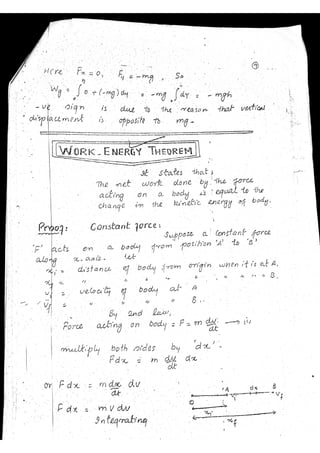 9
Here Fx = 0, Fy = -mg, So
Wg = ∫0 + (-mg)dy = -mg ∫dy = -mgh
-ve sign is due to the reason that vertical
displacement is opposite to mg.
WORK-ENERGY THEOREM
It states that;
The net work done by the force
acting on a body is equal to the
change in the kinetic energy of body.
Proof: Constant force:
Suppose a constant force
'F' acts on a body from position 'A' to 'B'
along x-axis. Let
xi = distance of body from origin when it is at A.
xf = " " " " " " " " B.
vi = velocity of body at A
vf = " " " " B.
By 2nd law,
Force acting on body = F = m dv/dt → (i)
multiply both sides by 'dx'.
Fdx = m dv/dt dx
or Fdx = m dx/dt dv
A dx B
vi vf
Fdx = m v dv
xi
Integrating
xf